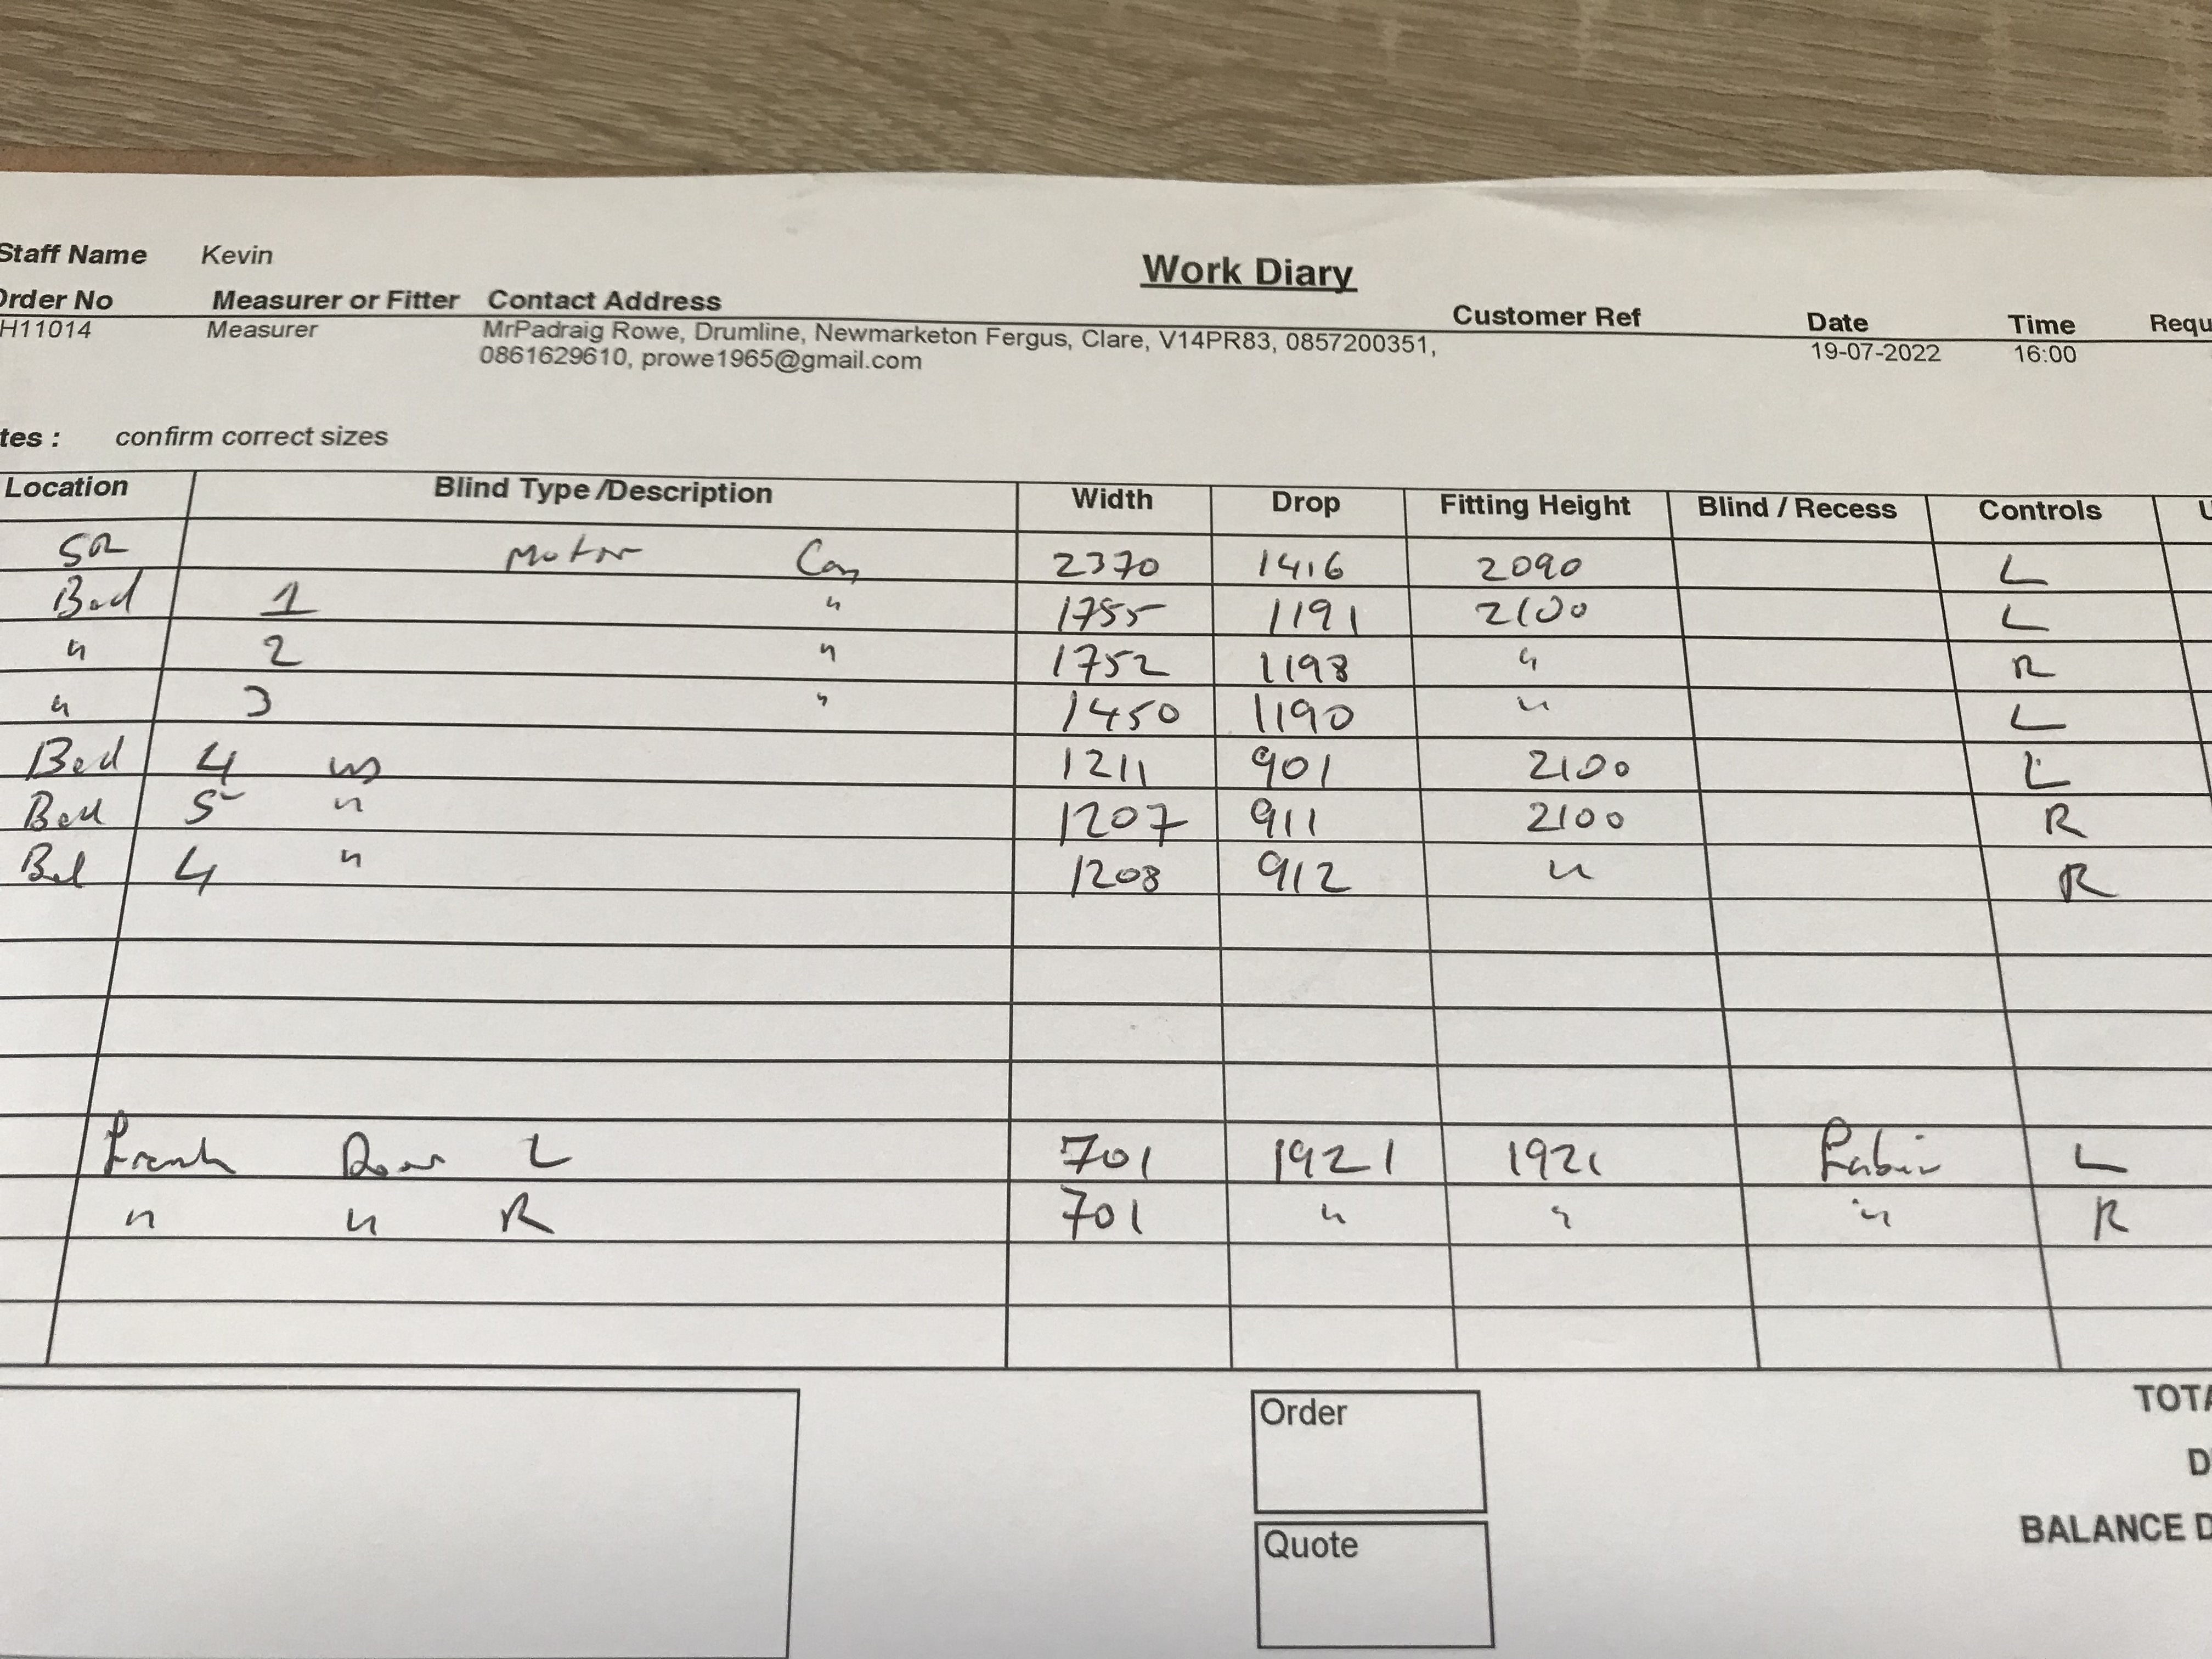 Work Diary
Staff Name Kevin
Order No Measurer or Fitter Contact Address Customer Ref Date Time Requ
H11014 Measurer MrPadraig Rowe, Drumline, Newmarketon Fergus, Clare, V14PR83, 0857200351, 19-07-2022 16:00
0861629610, prowe1965@gmail.com
tes : confirm correct sizes
Location Blind Type /Description Width Drop Fitting Height Blind / Recess Controls U
SR Motor 2370 1416 2090 L
Bed 1 " 1755 1191 2100 L
" 2 " 1752 1198 " R
" 3 " 1450 1190 " L
Bed 4 1211 901 2100 L
Bed 5 " 1207 911 2100 R
Bed 4 " 1208 912 " R
French Door L 701 1921 1921 L
" " R 701 " " " R
Order
Quote
TOTA
D
BALANCE D